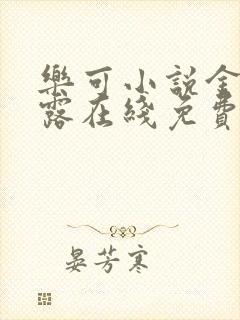 樂可小說金
露在綫免費
晏芳寒